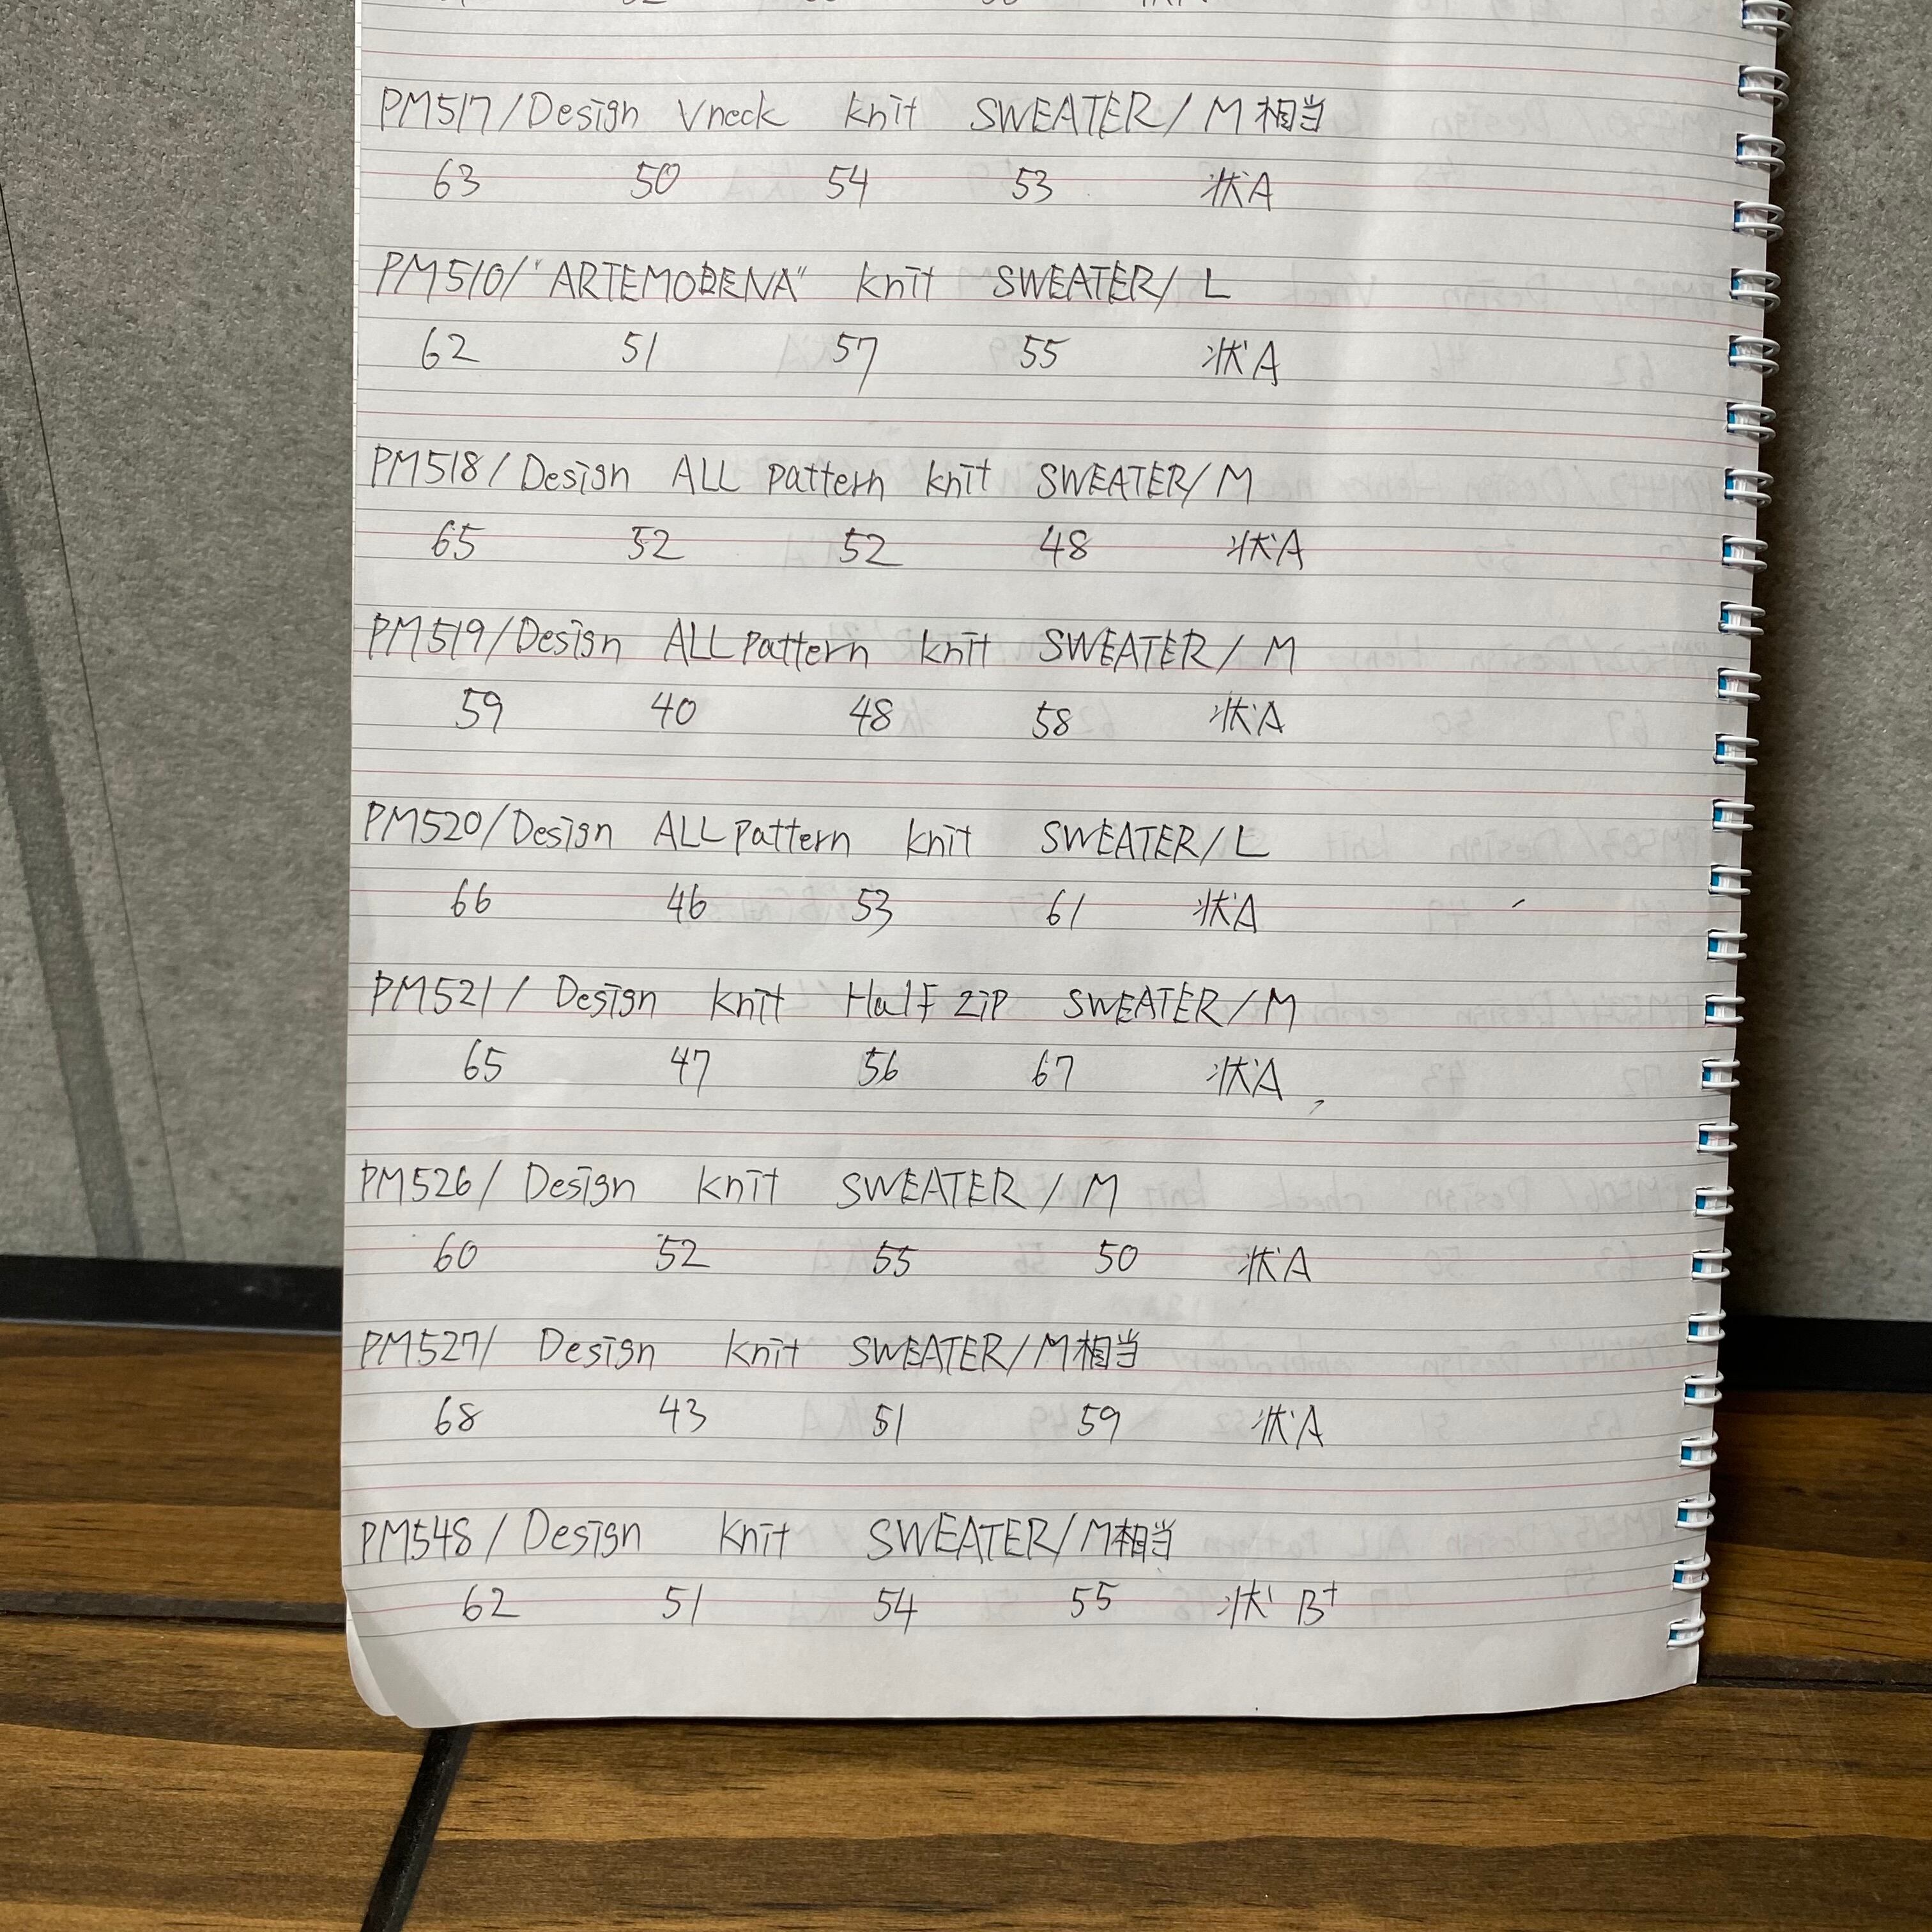 PM517/Design Vneck knit SWEATER/M相当
63 50 54 53 状A
PM510/"ARTEMODENA" knit SWEATER/L
62 51 57 55 状A
PM518/Design ALL pattern knit SWEATER/M
65 52 52 48 状A
PM519/Design ALL pattern knit SWEATER/M
59 40 48 58 状A
PM520/Design ALL pattern knit SWEATER/L
66 46 53 61 状A
PM521/Design knit Half zip SWEATER/M
65 47 56 67 状A
PM526/Design knit SWEATER/M
60 52 55 50 状A
PM527/Design knit SWEATER/M相当
68 43 51 59 状A
PM548/Design knit SWEATER/M相当
62 51 54 55 状B+